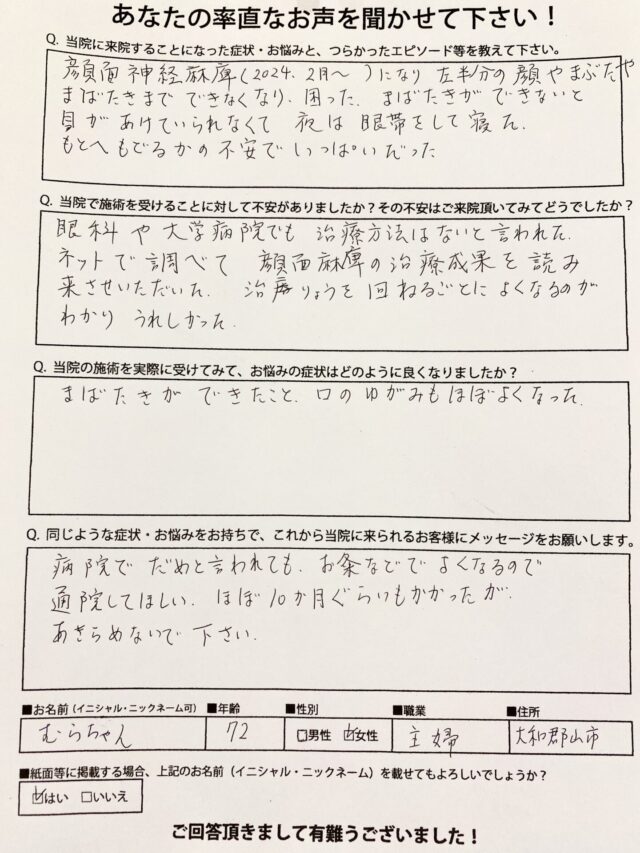 あなたの率直なお声を聞かせて下さい！
Q. 当院に来院することになった症状・お悩みと、つらかったエピソード等を教えて下さい。
顔面神経麻痺(2024. 2月〜 )になり 左半分の顔やまぶたや
まばたきまで できなくなり. 困った. まばたきが できないと
目が あけていられなくて 夜は 眼帯をして寝た.
もとへもどるかの不安でいっぱいだった
Q. 当院で施術を受けることに対して不安がありましたか？その不安はご来院頂いてみてどうでしたか？
眼科や大学病院でも 治療方法はないと言われた.
ネットで調べて 顔面麻痺の治療成果を読み
来させいただいた. 治療りょうを回ねるごとによくなるのが
わかり うれしかった.
Q. 当院の施術を実際に受けてみて、お悩みの症状はどのように良くなりましたか？
まばたきが できたこと. 口のゆがみもほぼよくなった.
Q. 同じような症状・お悩みをお持ちで、これから当院に来られるお客様にメッセージをお願いします。
病院で だめと言われても. お灸などで よくなるので
通院してほしい. ほぼ10か月ぐらいもかかったが.
あきらめないで下さい.
■お名前（イニシャル・ニックネーム可） ■年齢 ■性別 ■職業 ■住所
むらちゃん 72 □男性 ☑女性 主婦 大和郡山市
■紙面等に掲載する場合、上記のお名前（イニシャル・ニックネーム）を載せてもよろしいでしょうか？
☑はい □いいえ
ご回答頂きまして有難うございました！